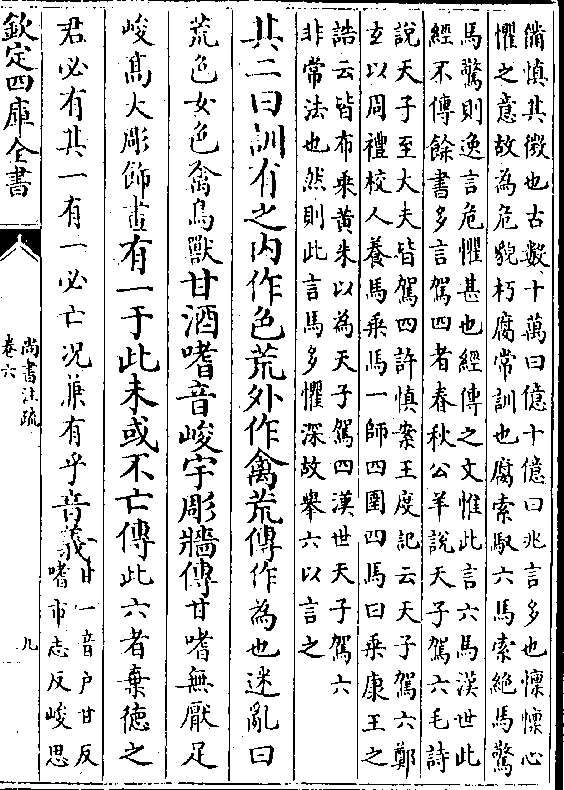 備慎其徴也古數十萬曰億十億曰兆言多也懍懍心
懼之意故為危貌朽腐常訓也腐索馭六馬索絶馬驚
馬驚則逸言危懼甚也經傳之文惟此言六馬漢世此
經不傳餘書多言駕四者春秋公羊說天子駕六毛詩
說天子至大夫皆駕四許慎案王度記云天子駕六鄭
玄以周禮校人養馬乗馬一師四圉四馬曰乗康王之
誥云皆布乗黄朱以為天子駕四漢世天子駕六
非常法也然則此言馬多懼深故舉六以言之
其二曰訓有之内作色荒外作禽荒傳作為也迷亂曰
荒色女色禽鳥獸甘酒嗜音峻宇彫牆傳甘嗜無厭足
峻髙大彫飾畫有一于此未或不亡傳此六者棄徳之
君必有其一有一必亡况兼有乎音義甘一音户甘反
嗜市志反峻思
欽定四庫全書
尚書注疏
卷六
九